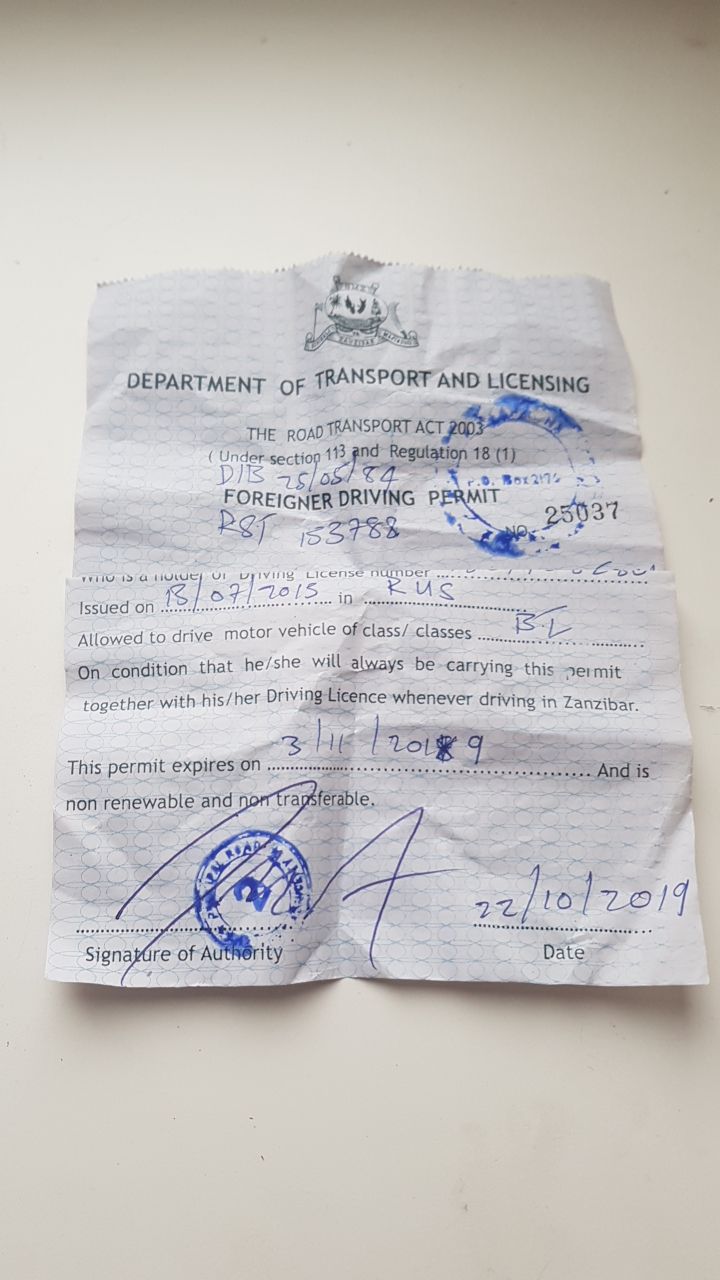 ZANZIBAR
DEPARTMENT OF TRANSPORT AND LICENSING
THE ROAD TRANSPORT ACT 2003
( Under section 113 and Regulation 18 (1)
DIB 25/05/84
P.O. Box
FOREIGNER DRIVING PERMIT
RST 153788
NO. 25037
who is a holder of Driving License number
Issued on 18/07/2015 in RUS
Allowed to drive motor vehicle of class/ classes
On condition that he/she will always be carrying this permit
together with his/her Driving Licence whenever driving in Zanzibar.
3/11/2019
This permit expires on And is
non renewable and non transferable.
22/10/2019
Signature of Authority Date